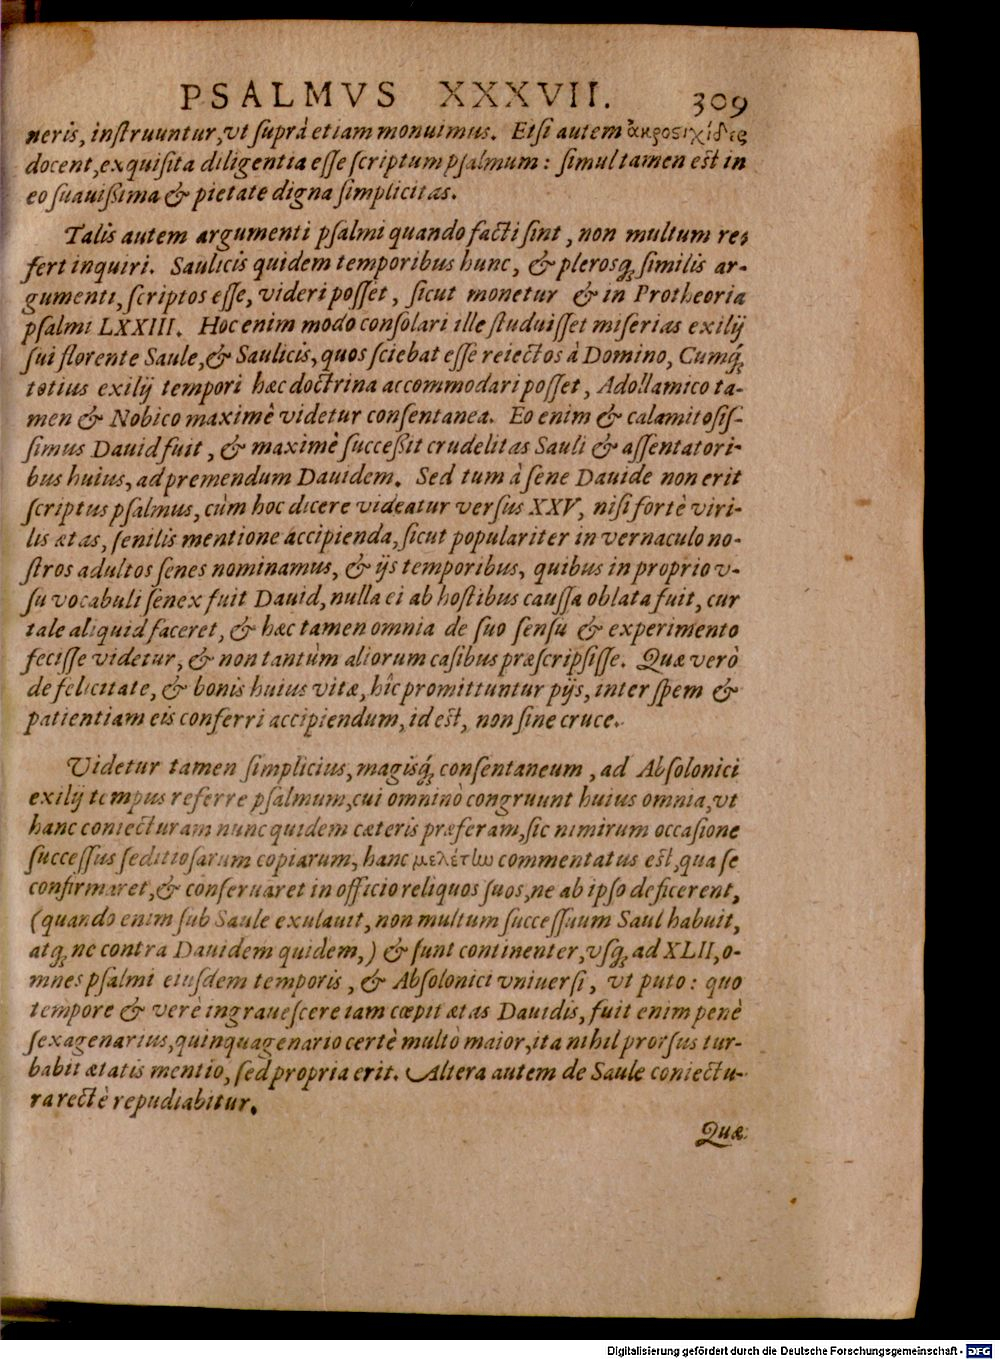 PSALMVS XXXVII. 309
neris, inſtruuntur, vt ſuprà etiam monuimus. Etſi autem ἀκροςιχίδες
docent, exquiſita diligentia eſſe ſcriptum pſalmum: ſimul tamen eſt in
eo ſuauißima & pietate digna ſimplicitas.
Talis autem argumenti pſalmi quando facti ſint, non multum re-
fert inquiri. Saulicis quidem temporibus hunc, & pleroſq́; ſimilis ar-
gumenti, ſcriptos eſſe, videri poſſet, ſicut monetur & in Protheoria
pſalmi LXXIII. Hoc enim modo conſolari ille ſtuduiſſet miſerias exilij
ſui florente Saule, & Saulicis, quos ſciebat eſſe reiectos à Domino, Cumq́;
totius exilij tempori hæc doctrina accommodari poſſet, Adollamico ta-
men & Nobico maximè videtur conſentanea. Eo enim & calamitoſiſ-
ſimus Dauid fuit, & maximè ſucceßit crudelitas Sauli & aſſentatori-
bus huius, ad premendum Dauidem. Sed tum à ſene Dauide non erit
ſcriptus pſalmus, cùm hoc dicere videatur verſus XXV, niſi fortè viri-
lis ætas, ſenilis mentione accipienda, ſicut populariter in vernaculo no-
ſtros adultos ſenes nominamus, & ijs temporibus, quibus in proprio v-
ſu vocabuli ſenex fuit Dauid, nulla ei ab hoſtibus cauſſa oblata fuit, cur
tale aliquid faceret, & hæc tamen omnia de ſuo ſenſu & experimento
feciſſe videtur, & non tantùm aliorum caſibus præſcripſiſſe. Quæ verò
de felicitate, & bonis huius vitæ, hîc promittuntur pijs, inter ſpem &
patientiam eis conferri accipiendum, id eſt, non ſine cruce.
Videtur tamen ſimplicius, magisq́; conſentaneum, ad Abſolonici
exilij tempus referre pſalmum, cui omninò congruunt huius omnia, vt
hanc coniecturam nunc quidem cæteris præferam, ſic nimirum occaſione
ſucceſſus ſeditioſarum copiarum, hanc μελέτω commentatus eſt, qua ſe
confirmaret, & conſeruaret in officio reliquos ſuos, ne ab ipſo deficerent,
(quando enim ſub Saule exulauit, non multum ſucceſſuum Saul habuit,
atq́; ne contra Dauidem quidem,) & ſunt continenter, vſq́; ad XLII, o-
mnes pſalmi eiuſdem temporis, & Abſolonici vniuerſi, vt puto: quo
tempore & verè ingraueſcere iam cœpit ætas Dauidis, fuit enim penè
ſexagenarius, quinquagenario certè multò maior, ita nihil prorſus tur-
babit ætatis mentio, ſed propria erit. Altera autem de Saule coniectu-
ra rectè repudiabitur.
Quæ
Digitalisierung gefördert durch die Deutsche Forschungsgemeinschaft - DFG